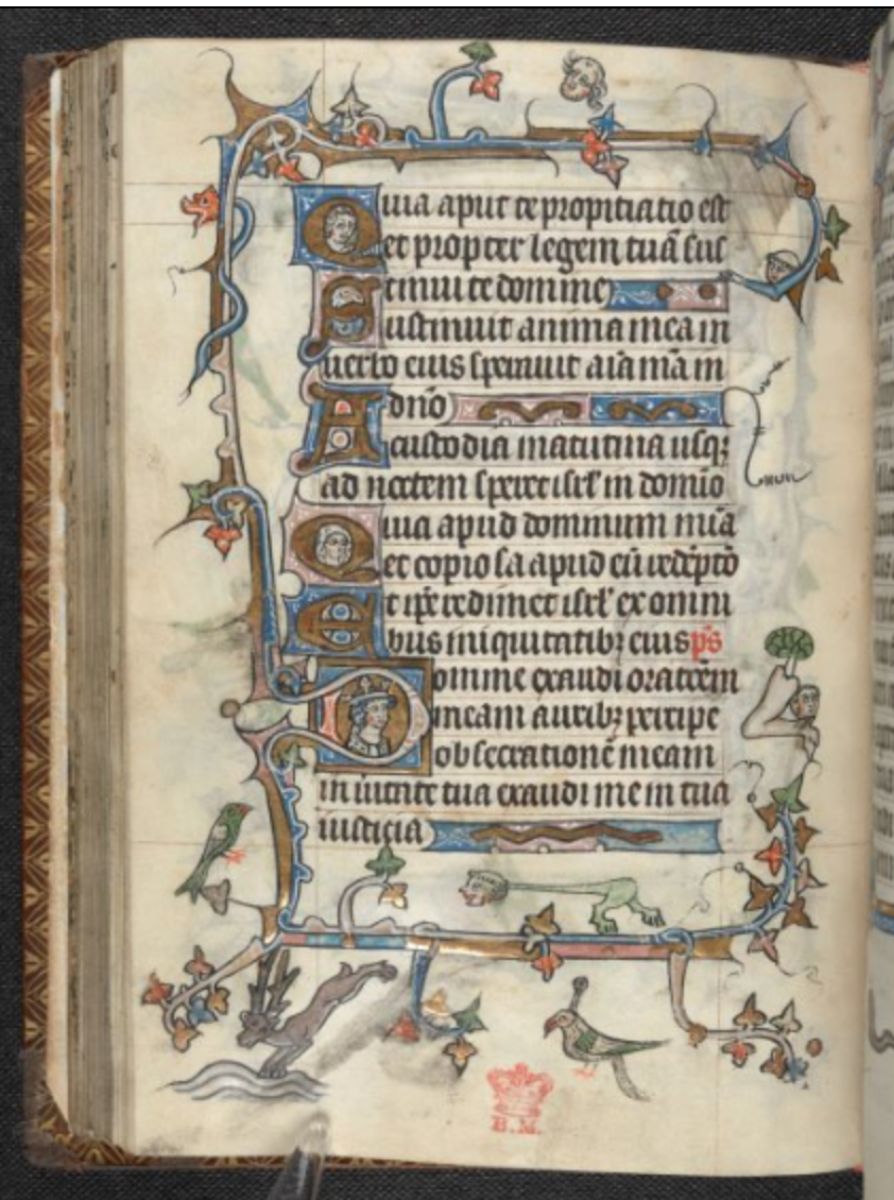 Quia aput te propitiatio est
et propter legem tuā sus
tinui te domine
Sustinuit anima mea in
uerbo eius sperauit aīa mā in
dn̄o
A custodia matutina usqꝫ
ad noctem speret isrl̄ in domīo
Quia apud dominum mīa
et copiosa apud eū redēptō
Et ip̄e redimet isrl̄ ex omni
bus iniquitatibꝫ eius p̄s
Domine exaudi orationem
meam auribꝫ percipe
obsecrationē meam
in ueritate tua exaudi me in tua
iusticia
B.M.